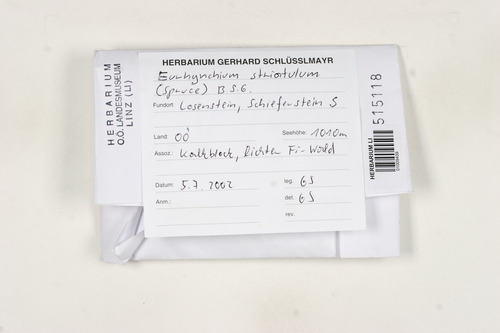 HERBARIUM
O.Ö. LANDESMUSEUM
LINZ (LI)
HERBARIUM GERHARD SCHLÜSSLMAYR
Eurhynchium striatulum
(Spruce) B.S.G.
Fundort: Losenstein, Schieferstein S
Land: OÖ Seehöhe: 1010m
Assoz.: Kalkblock, lichter Fi-Wald
Datum: 5.7.2002 leg. GS
Anm.: det. GS
rev.
HERBARIUM LI
515118